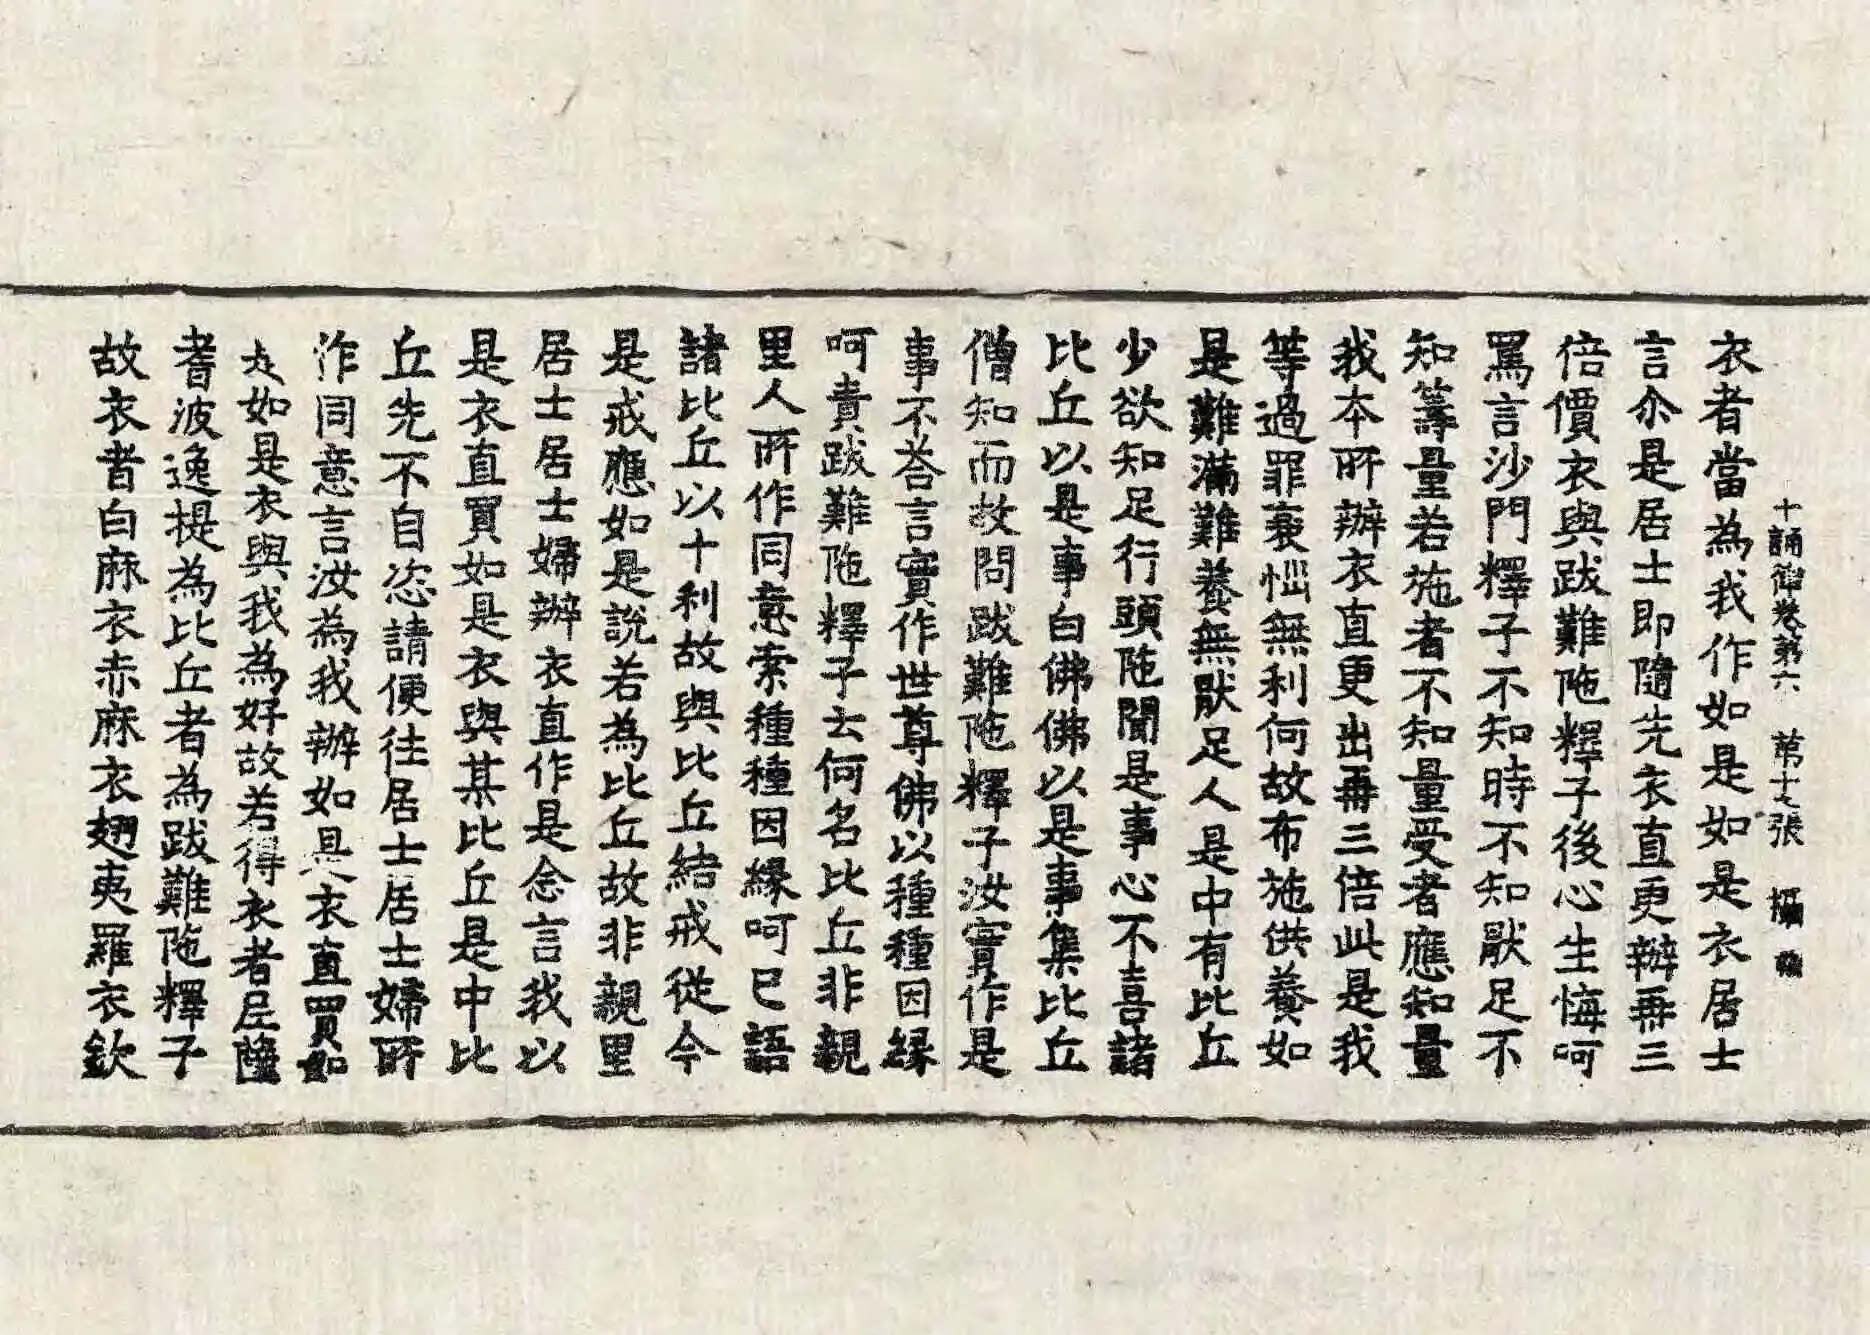 十誦律卷第六　第十七張　攝
衣者當為我作如是如是衣居士
言尒是居士即隨先衣直更辦再三
倍價衣與跋難陁釋子後心生悔呵
罵言沙門釋子不知時不知猒足不
知籌量若施者不知量受者應知量
我本所辦衣直更出再三倍此是我
等過罪衰惱無利何故布施供養如
是難滿難養無猒足人是中有比丘
少欲知足行頭陁聞是事心不喜諸
比丘以是事白佛佛以是事集比丘
僧知而故問跋難陁釋子汝實作是
事不荅言實作世尊佛以種種因緣
呵責跋難陁釋子云何名比丘非親
里人所作同意索種種因緣呵已語
諸比丘以十利故與比丘結戒從今
是戒應如是說若為比丘故非親里
居士居士婦辦衣直作是念言我以
是衣直買如是衣與某比丘是中比
丘先不自恣請便往居士居士婦所
作同意言汝為我辦如是衣直買如
是如是衣與我為好故若得衣者尼薩
耆波逸提為比丘者為跋難陁釋子
故衣者白麻衣赤麻衣翅夷羅衣欽